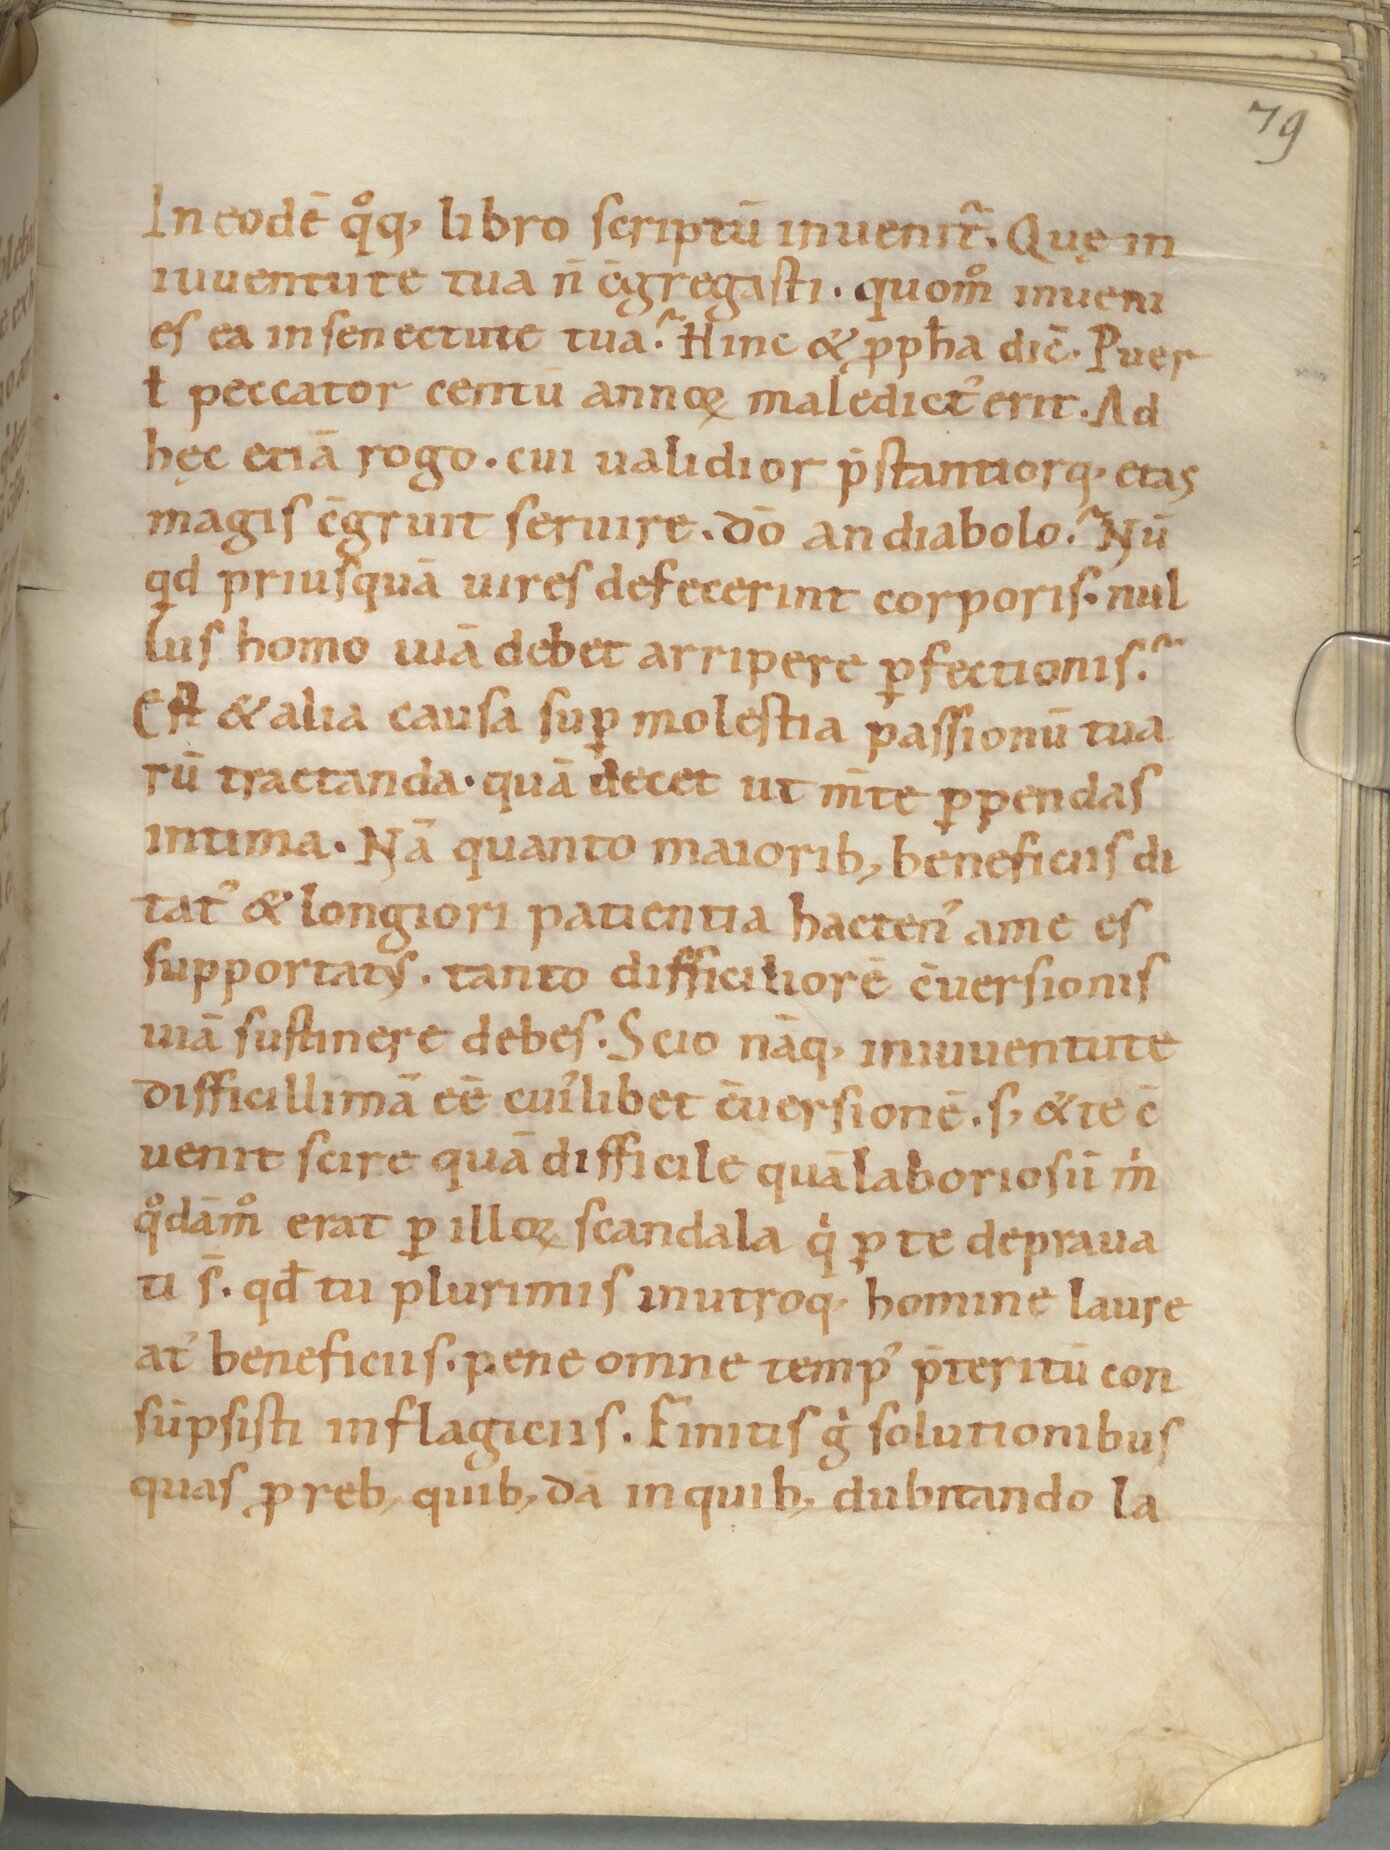 79
In eodē qͦq, libro scriptū inuenit᷑. Quę in
iuuentute tua n̄ c̄gregasti. quom̊ inueni
es ea in senectute tua? Hinc & ꝓph̄a dic̄. Puer
ł peccator centū annoꝝ maledictꝰ erit. Ad
hęc etiā rogo. cui ualidior p̄stantiorq, etas
magis c̄gruit seruire. dō an diabolo? Nū
qd priusquā uires defecerint corporis. nul
lus homo uiā debet arripere ꝑfectionis?
Est & alia causa suꝑ molestia passionū tua
rū tractanda. quā decet ut m̄te ꝑpendas
intima. Nā quanto maiorib, beneficiis di
tatꝰ & longiori patientia hactenꝰ ame es
supportatꝰ. tanto difficiliorē c̄uersionis
uiā sustinere debes. Scio nāq, iniuuentute
difficillimā eē cuiꝰlibet c̄uersionē. s, & te c̄
uenit scire quā difficile quā laboriosū m̍
qͦdām̊ erat ꝑ illoꝝ scandala q̍ ꝑ te depraua
ti s̄. qđ tu plurimis inutroq, homine laure
atꝰ beneficiis. pene omne tempꝰ p̄teritū con
sūpsisti inflagiciis. Finitis g̍ solutionibus
quas ꝓ reb, quib,dā inquib, dubitando la